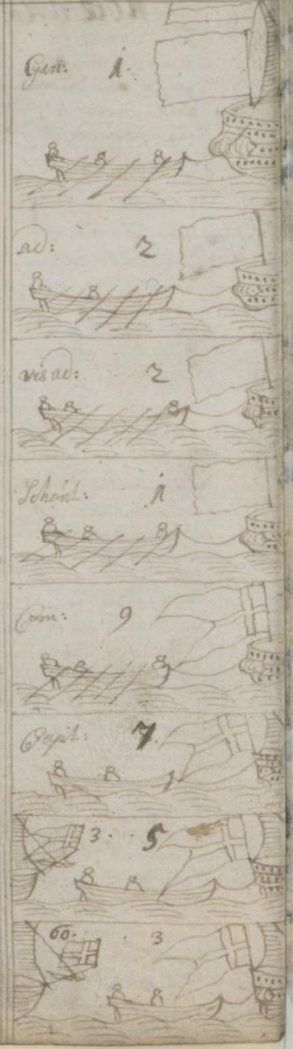 Gen: 1
ad: 2
vis ad: 2
Schönt: 1
Com: 9
Capit: 7
3. 5
60. 3